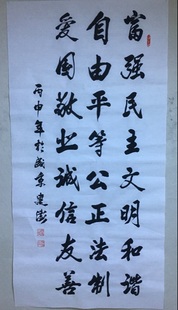 富强民主文明和谐
自由平等公正法制
爱国敬业诚信友善
丙申年於盛京建澎